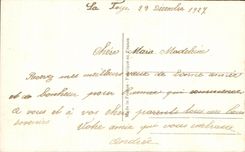 La Faye 29 Décembre 1927
Chère Marie Madeleine
Recevez mes meilleurs vœux de bonne année
et de bonheur pour l'année qui commence
à vous et à vos chers parents tous
Votre amie qui vous embrasse
Andrée